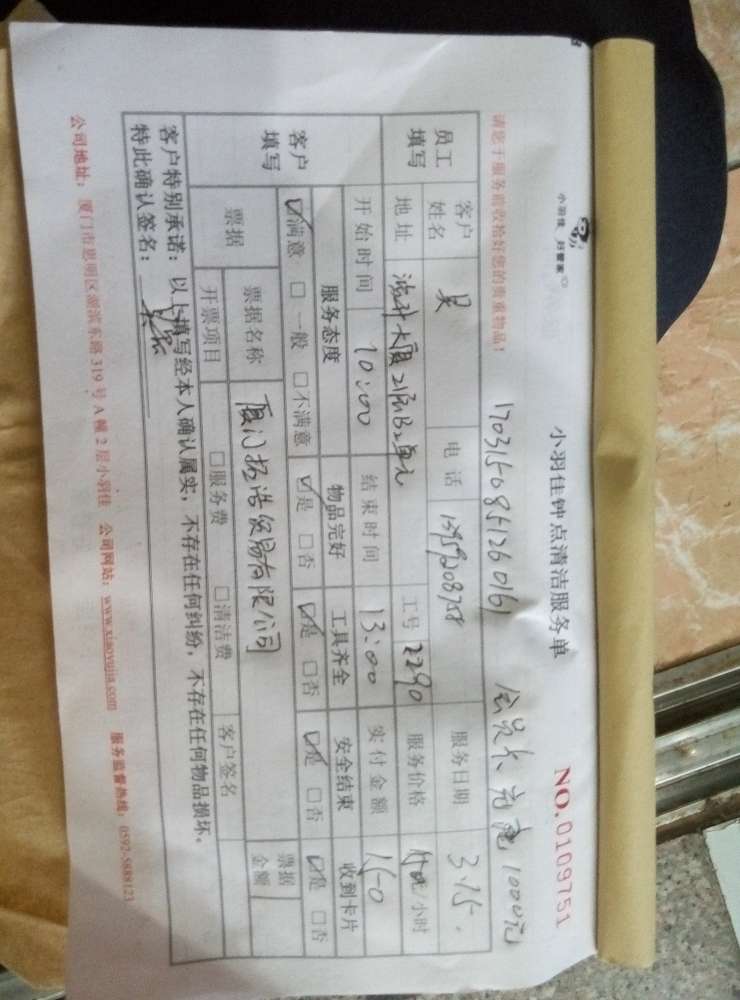 小羽佳 好管家
小羽佳钟点清洁服务单
NO.0109751
请您于服务前收拾好您的贵重物品！
1703150851260161 会员卡充 1000元
员工填写 客户姓名 吴 电话 服务日期 3.15.
地址 大厦21层B2单元 工号 2290 服务价格 元/小时
开始时间 10:00 结束时间 13:00 实付金额 150
客户填写 服务态度 物品完好 工具齐全 安全结束 收到卡片
☑满意 □一般 □不满意 ☑是 □否 ☑是 □否 ☑是 □否 ☑是 □否
票据 票据名称 厦门拓浩贸易有限公司 票据金额
开票项目 □服务费 □清洁费 客户签名
客户特别承诺：以上填写经本人确认属实，不存在任何纠纷，不存在任何物品损坏。
特此确认签名：
公司地址：厦门市思明区湖滨东路319号A幢2层小羽佳 公司网站：www.xiaoyujia.com 服务监督热线：0592-5888123